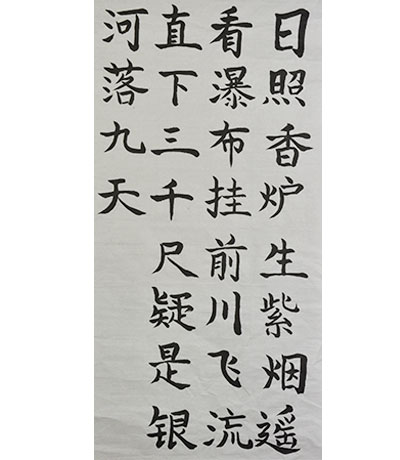 日照香炉生紫烟遥
看瀑布挂前川飞流
直下三千尺疑是银
河落九天